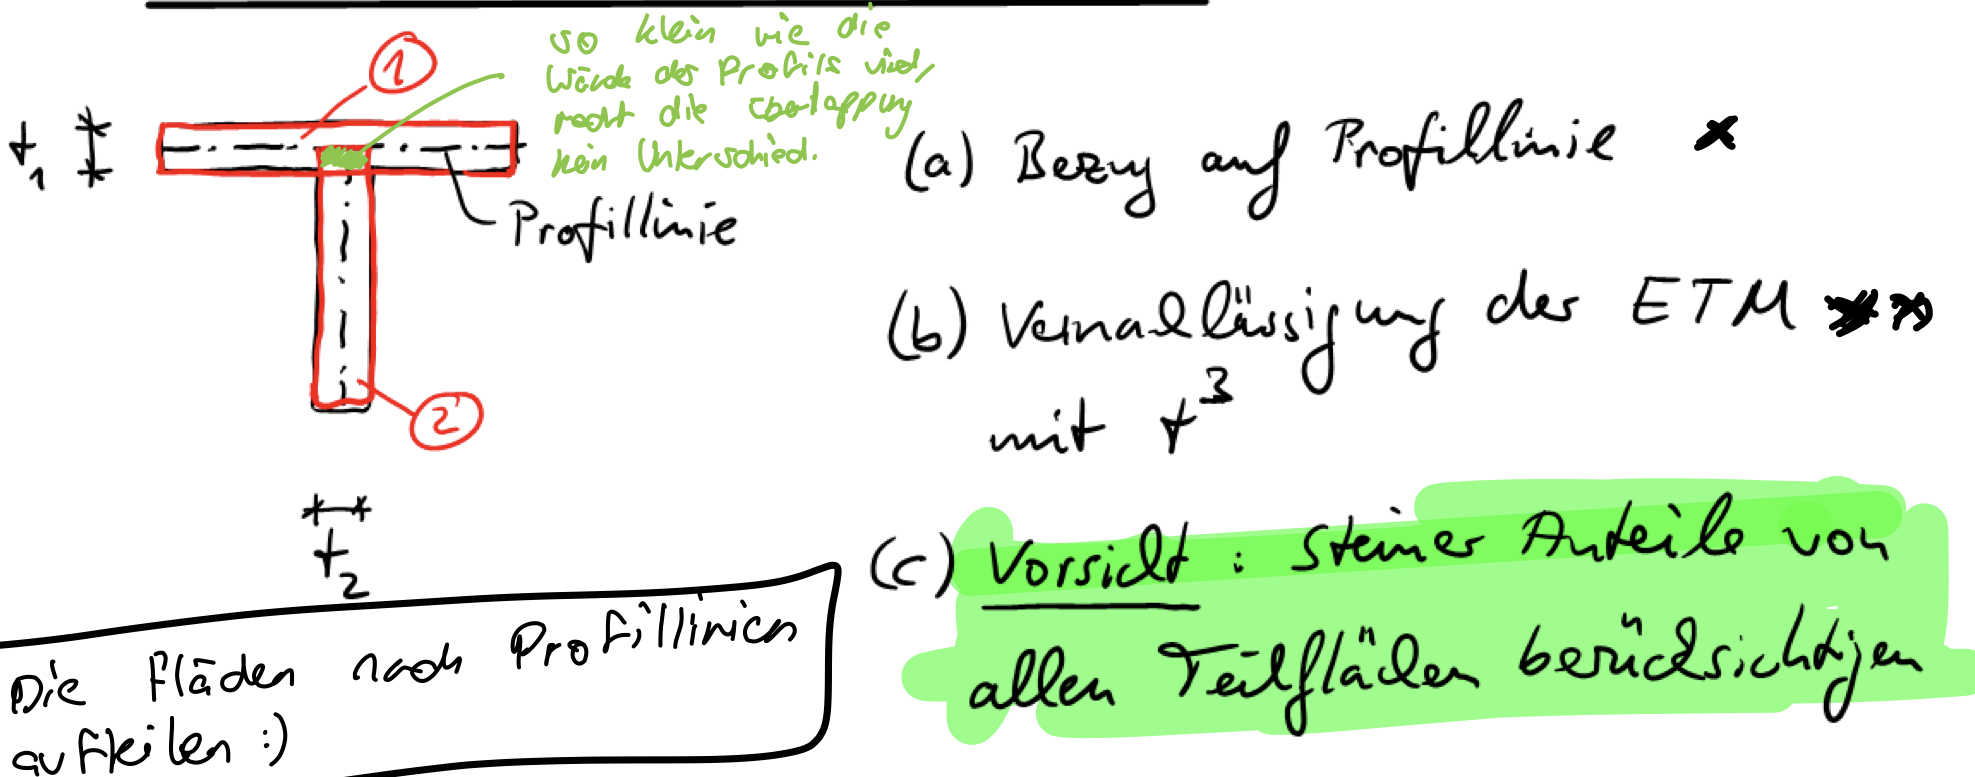 so klein wie die
Wände des Profils sind,
macht die Überlappung
kein Unterschied.
1
t1
Profillinie
2
t2
Die Flächen nach Profillinien
aufteilen :)
(a) Bezug auf Profillinie *
(b) Vernachlässigung der ETM **
mit t³
(c) Vorsicht : Steiner Anteile von
allen Teilflächen berücksichtigen